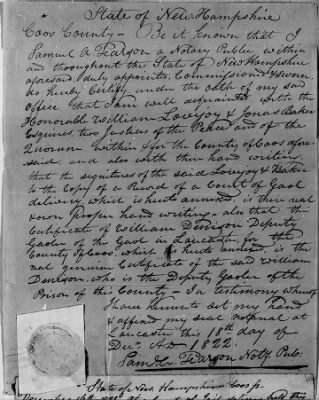 State of New Hampshire
Coos County - Be it Known that I
Samuel A Pearson a Notary Public within
and throughout the State of New Hampshire
aforesaid duly appointed, Commissioned & Sworn,
do hereby Certify under the oath of my said
office that I am well acquainted with the
Honorable William Lovejoy & Jonas Baker
Esquires two Justices of the Peace and of the
Quorum within & for the County of Coos afore
said and also with their hand writing
that the signatures of the said Lovejoy & Baker
to the Copy of a Record of a Court of Gaol
delivery which is hereto annexed, is their real
& own Proper hand writing - also that the
Certificate of William Denison Deputy
Gaoler of the Gaol in Lancaster for the
County of Coos, which is hereto annexed is the
real genuine Certificate of the said William
Denison, who is the Deputy Gaoler of the
Prison of this County - In testimony whereof
I have hereunto set my hand
& affixed my seal notarial at
Lancaster this 18th day of
Decr. AD 1822.
Saml A Pearson Noty Pub.
State of New Hampshire Coos ss.